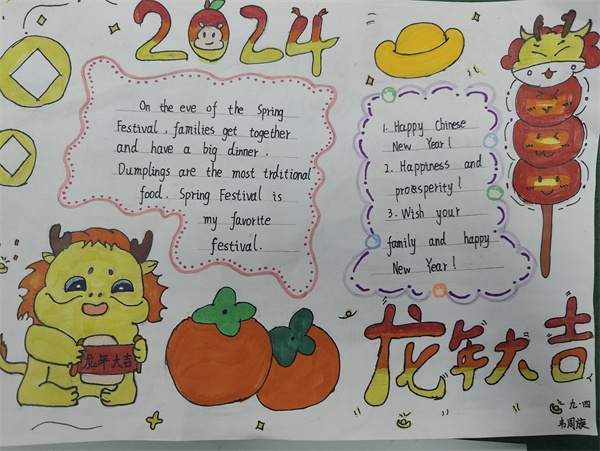 2024
On the eve of the Spring
Festival, families get together
and have a big dinner.
Dumplings are the most trditional
food. Spring Festival is
my favorite
festival.
1. Happy Chinese
New Year!
2. Happiness and
prosperity!
3. Wish your
family and happy
New Year!
龙年大吉
龙年大吉
九·四
韦周旋